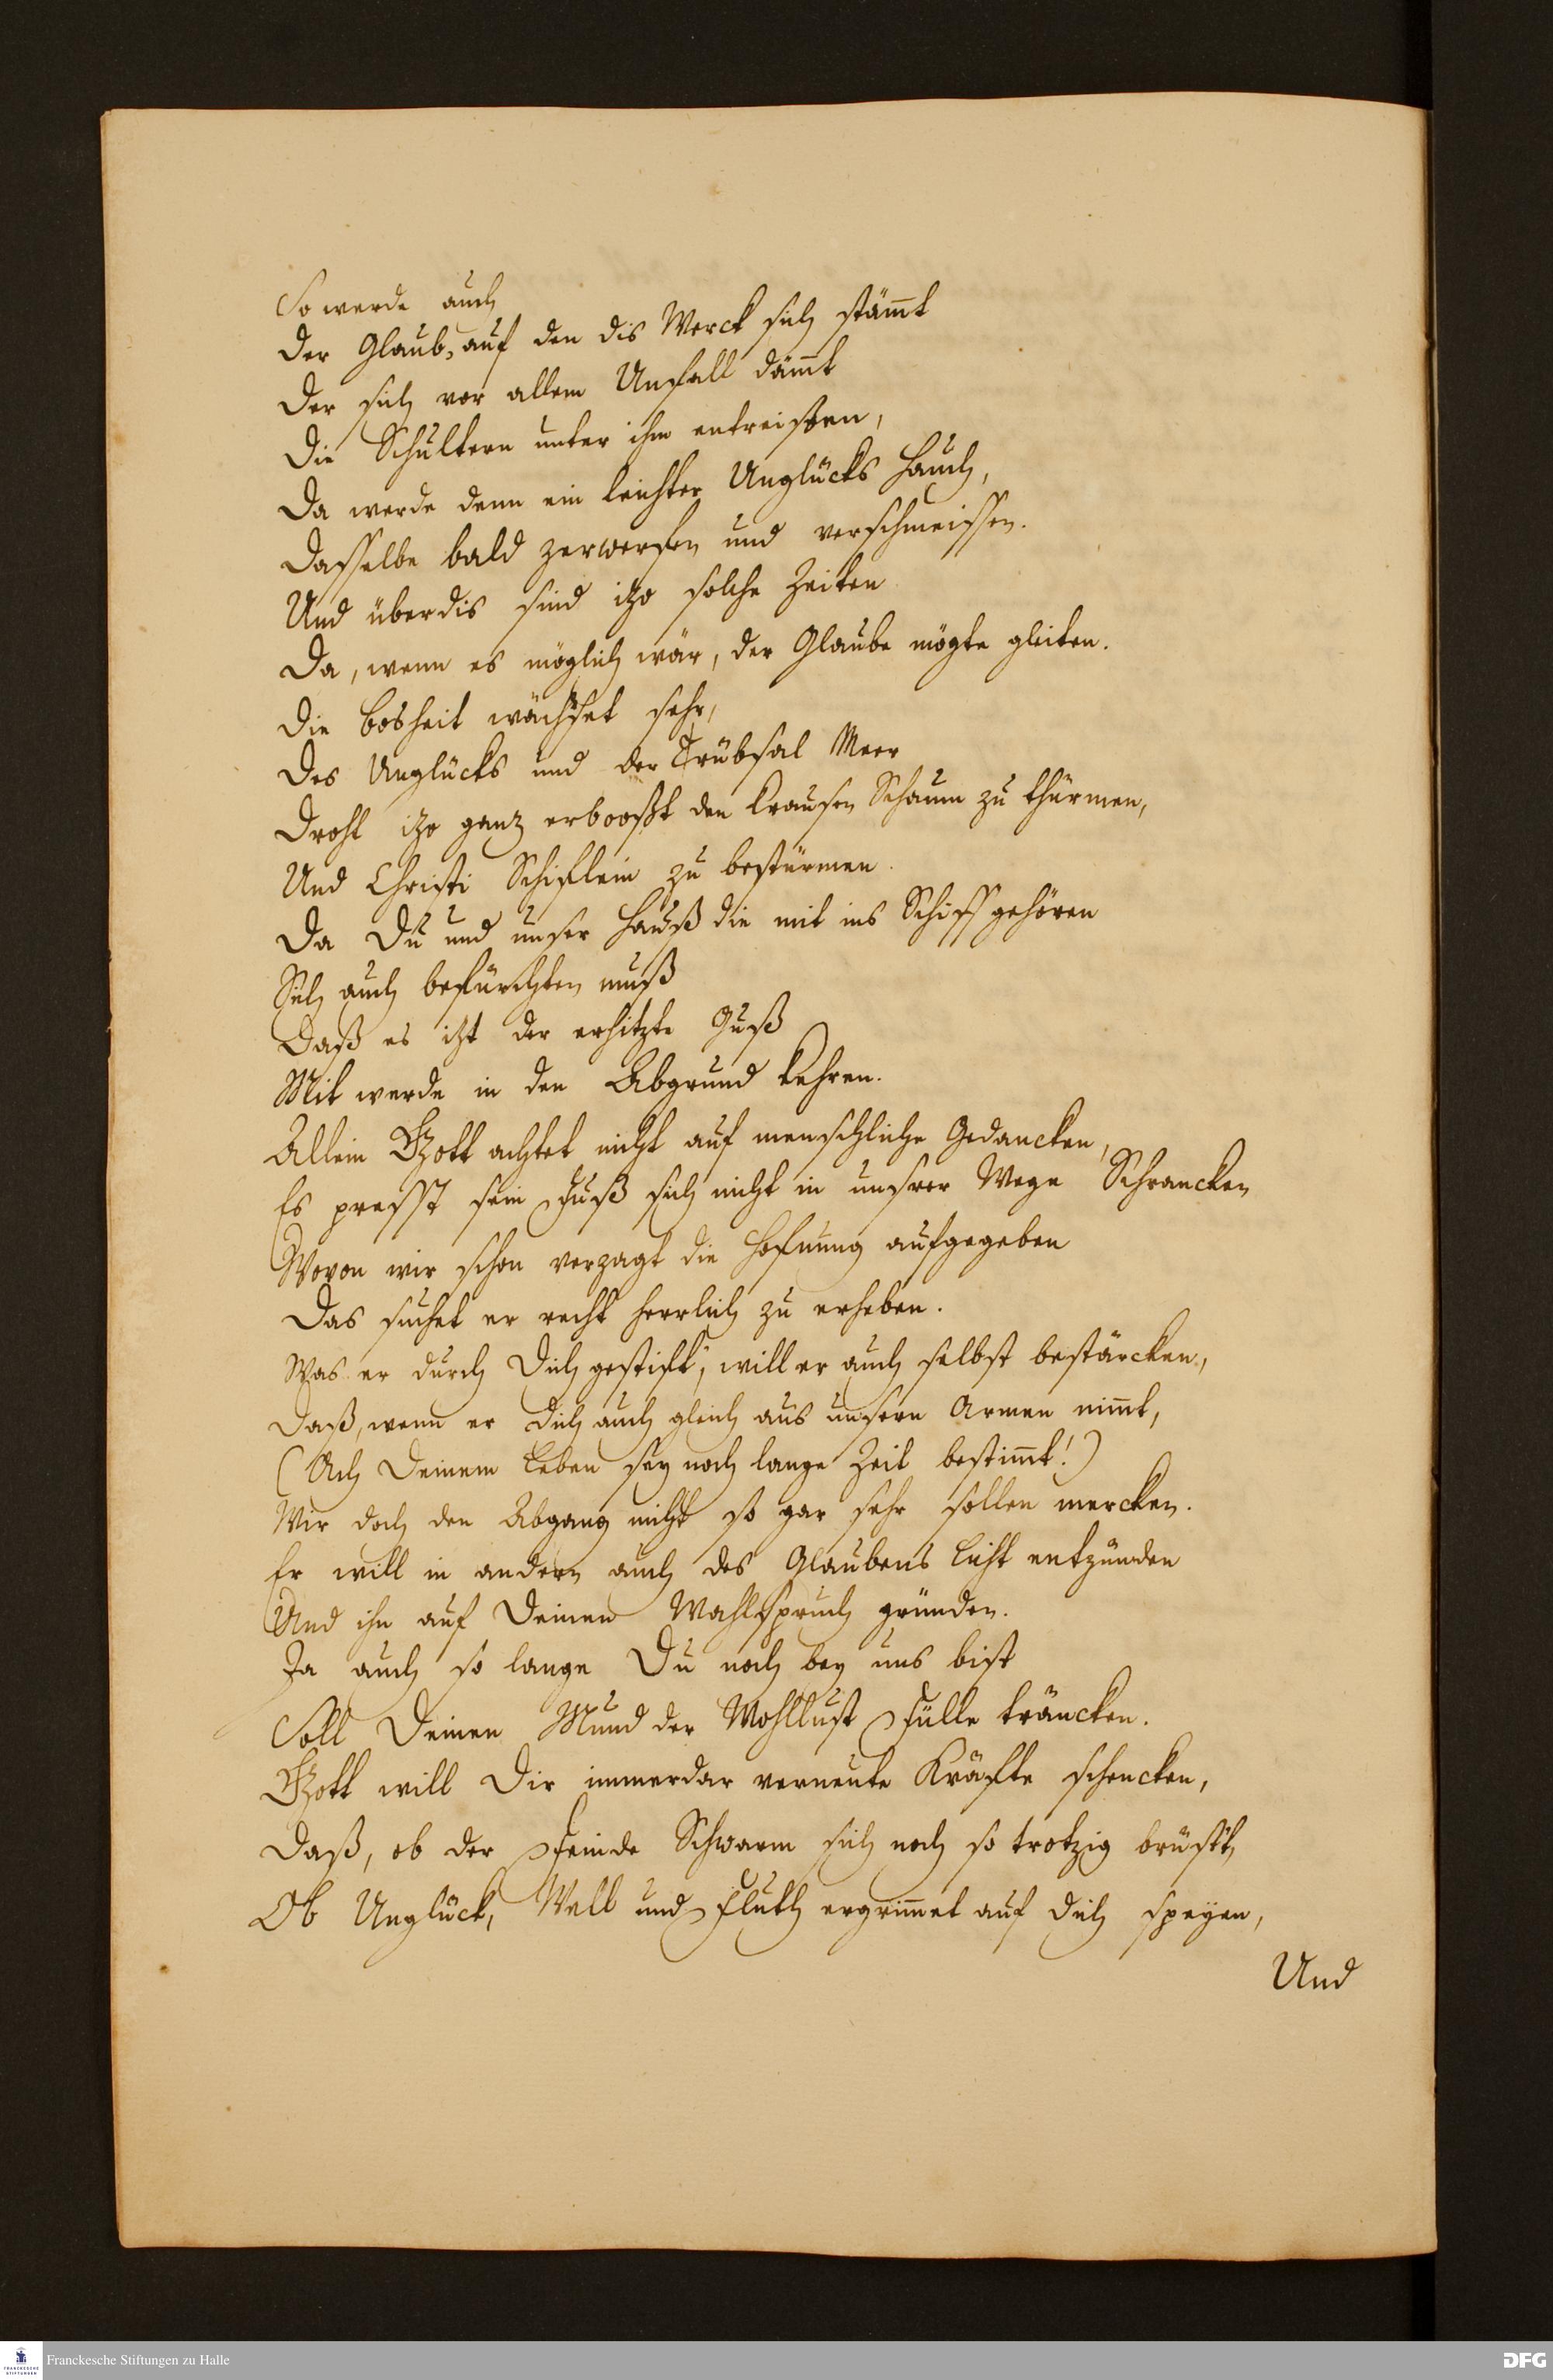 So werde auch
Der Glaub, auf den dis Werck sich stäm̅t
Der sich vor allem Unfall däm̅t
Die Schultern unter ihm entreißen,
Da werde denn ein leichter Unglücks Hauch,
Dasselbe bald zerwerfen und verschmeissen.
Und überdis sind itzo solche Zeiten
Da, wenn es möglich wär, der Glaube mögte gleiten.
Die Bosheit wächset sehr,
Des Unglücks und der Trübsal Meer
Droht itzo ganz erbooßt den krausen Schaum zu thürmen,
Und Christi Schiflein zu bestürmen.
Da Du und unser Hauß die mit ins Schiff gehören
Sich auch befürchten muß
Daß es itzt der erhitzte Guß
Mit werde in den Abgrund kehren.
Allein Gott achtet nicht auf menschliche Gedancken,
Es presst sein Fuß sich nicht in unsrer Wege Schrancken
Wovon wir schon verzagt die Hofnung aufgegeben
Das suchet er recht herrlich zu erheben.
Was er durch Dich gestift, will er auch selbst bestärcken,
Daß, wenn er Dich auch gleich aus unsern Armen nim̅t,
(Ach Deinem Leben sey noch lange Zeit bestim̅t!)
Wir doch den Abgang nicht so gar sehr sollen mercken.
Er will in andern auch des Glaubens Licht entzünden
Und ihn auf Deinen Wahlspruch gründen.
Ja auch so lange Du noch bey uns bist
Soll Deinen Mund der Wohllust Fülle träncken.
Gott will Dir immerdar verneute Kräfte schencken,
Daß, ob der Feinde Schwarm sich noch so trotzig brüst't,
Ob Unglück, Well und Fluth ergrim̅et auf Dich speyen,
Und
Franckesche Stiftungen zu Halle
DFG